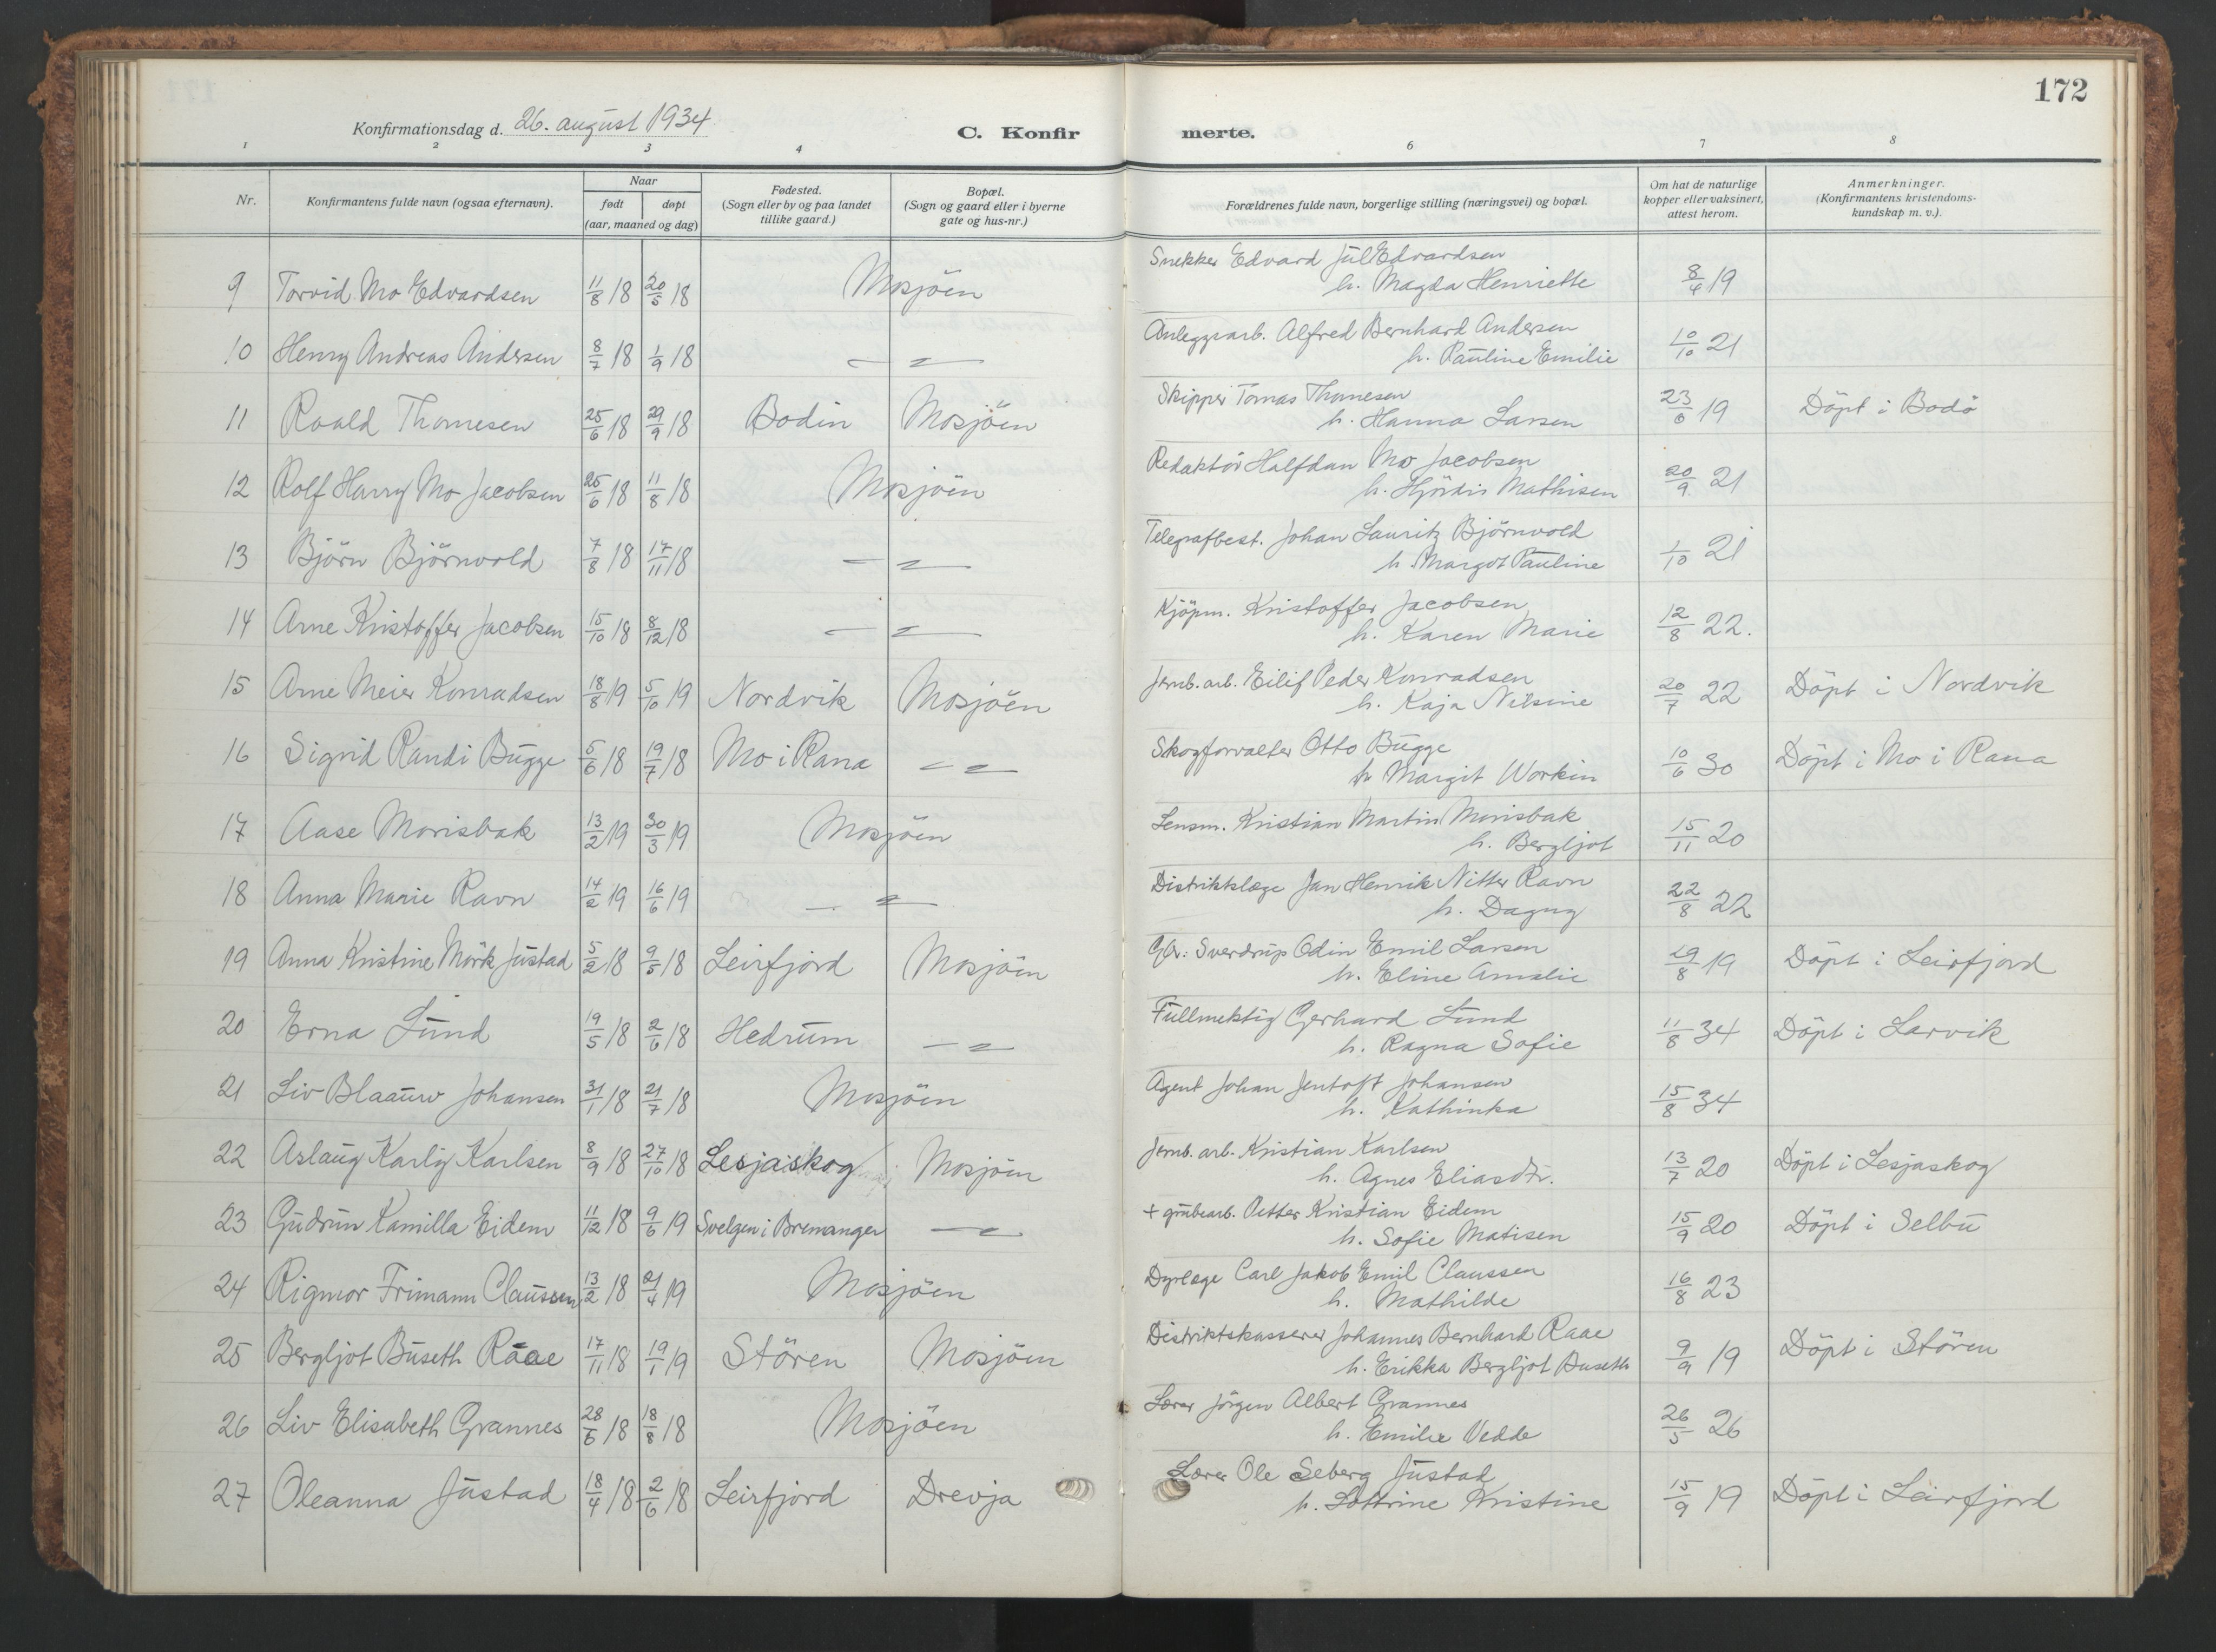 172
Konfirmationsdag d. 26. august 1934
C. Konfirmerte.
1 2 3 4 6 7 8
Nr.
Konfirmantens fulde navn (ogsaa efternavn).
Naar
født døpt
(aar, maaned og dag)
Fødested.
(Sogn eller by og paa landet
tillike gaard.)
Bopæl.
(Sogn og gaard eller i byerne
gate og hus-nr.)
Forældrenes fulde navn, borgerlige stilling (næringsvei) og bopæl.
Om hat de naturlige
kopper eller vaksinert,
attest herom.
Anmerkninger.
(Konfirmantens kristendoms-
kundskap m. v.).
Snekker Edvard Jul Edvardsen
9 Torvid Mo Edvardsen 11/8 18 20/5 18 Mosjöen h. Magda Henriette 8/4 19
Anleggsarb. Alfred Bernhard Andersen
10 Henry Andreas Andersen 8/7 18 1/9 18 — " — h. Pauline Emilie 10/10 21
Skipper Tomas Thomesen
11 Roald Thomesen 25/6 18 29/9 18 Bodin Mosjöen h. Hanna Larsen 23/6 19 Döpt i Bodö
Redaktör Halfdan Mo Jacobsen
12 Rolf Harry Mo Jacobsen 25/6 18 11/8 18 Mosjöen h. Hjördis Mathisen 20/9 21
Telegrafbest. Johan Lauritz Björnvold
13 Björn Björnvold 7/8 18 17/11 18 — " — h. Margot Pauline 1/10 21
Kjöpm. Kristoffer Jacobsen
14 Arne Kristoffer Jacobsen 15/10 18 8/12 18 — " — h. Karen Marie 12/8 22.
Jernb. arb. Eilif Peder Konradsen
15 Arne Meier Konradsen 18/8 19 5/10 19 Nordvik Mosjöen h. Kaja Nilsine 20/7 22 Döpt i Nordvik
Skogforvalter Otto Bugge
16 Sigrid Randi Bugge 5/6 18 19/7 18 Mo i Rana — " — h. Margit Workin 10/6 30 Döpt i Mo i Rana
Lensm. Kristian Martin Morisbak
17 Aase Morisbak 13/2 19 30/3 19 Mosjöen h. Bergljot 15/11 20
Distriktslæge Jan Henrik Nitter Ravn
18 Anna Marie Ravn 14/2 19 16/6 19 — " — h. Dagny 22/8 22
Gbr: Sverdrup Odin Emil Larsen
19 Anna Kristine Mörk Justad 5/2 18 9/5 18 Leirfjord Mosjöen h. Eline Amalie 29/8 19 Döpt i Leirfjord
Fullmektig Gerhard Lund
20 Erna Lund 19/5 18 2/6 18 Hedrum — " — h. Ragna Sofie 11/8 34 Döpt i Larvik
Agent Johan Jentoft Johansen
21 Liv Blaauw Johansen 31/1 18 21/7 18 Mosjöen h. Kathinka 15/8 34
Jernb. arb. Kristian Karlsen
22 Aslaug Karly Karlsen 8/9 18 27/10 18 Lesjaskog Mosjöen h. Agnes Eliasdtr. 13/7 20 Döpt i Lesjaskog
+ grubearb. Petter Kristian Eidem
23 Gudrun Kamilla Eidem 11/12 18 9/6 19 Svelgen i Bremanger — " — h. Sofie Matisen 15/9 20 Döpt i Selbu
Dyrlæge Carl Jakob Emil Claussen
24 Rigmor Frimann Claussen 13/2 18 21/4 19 Mosjöen h. Mathilde 16/8 23
Distriktskasserer Johannes Bernhard Raae
25 Bergljot Buseth Raae 17/11 18 19/1 19 Stören Mosjöen h. Erikka Bergljot Buseth 9/9 19 Döpt i Stören
Lærer Jörgen Albert Grannes
26 Liv Elisabeth Grannes 28/6 18 18/8 18 Mosjöen h. Emilie Vedde 26/5 26
Lærer Ole Seberg Justad
27 Oleanna Justad 18/4 18 2/6 18 Leirfjord Drevja h. Lottrine Kristine 15/9 19 Döpt i Leirfjord